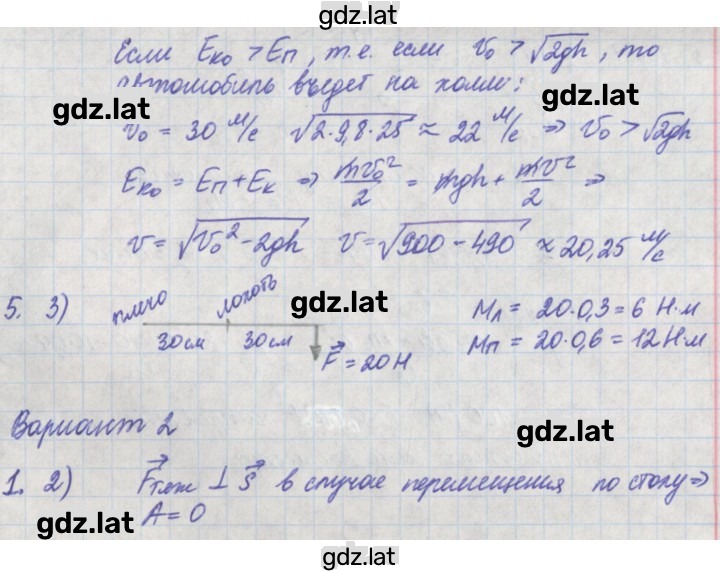 gdz.lat
Если Eко > Eп, т.е. если v₀ > √2gh, то
автомобиль въедет на холм:
gdz.lat
gdz.lat
v₀ = 30 м/с √2·9,8·25 ≈ 22 м/с ⇒ v₀ > √2gh
Eко = Eп + Eк ⇒ mv₀²/2 = mgh + mv²/2 ⇒
v = √v₀² - 2gh v = √900 - 490 ≈ 20,25 м/с
5. 3) плечо локоть gdz.lat Mл = 20·0,3 = 6 Н·м
30см 30см Mп = 20·0,6 = 12 Н·м
F⃗ = 20Н
Вариант 2
gdz.lat
1. 2) F⃗тяж ⊥ s⃗ в случае перемещения по столу ⇒
gdz.lat A = 0
gdz.lat